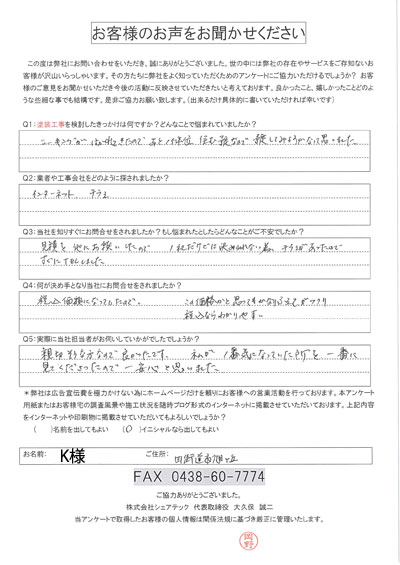 お客様のお声をお聞かせください
この度は弊社にお問い合わせをいただき、誠にありがとうございました。世の中には弊社の存在やサービスをご存知ないお
客様が沢山いらっしゃいます。その方たちに弊社をよく知っていただくためのアンケートにご協力いただけるでしょうか？ お客
様のご意見をお聞かせいただき今後の活動に反映させていただきたいと考えております。良かったこと、嬉しかったことどのよ
うな些細な事でも結構です。是非ご協力お願い致します。（出来るだけ具体的に書いていただければ幸いです）
Q1：塗装工事を検討したきっかけは何ですか？どんなことで悩まれていましたか？
思いました
Q2：業者や工事会社をどのように探されましたか？
インターネット、チラシ
Q3：当社を知りすぐにお問合せをされましたか？もし悩まれたとしたらどんなことがご不安でしたか？
見積を他にお願いしたので 1社だけでは決められない為、チラシがあったので
すぐにTELしました
Q4：何が決め手となり当社にお問合せをされましたか？
税込価格になっていたので。
税込ならわかりやすい
Q5：実際に当社担当者がお伺いしていかがでしたでしょうか？
親切な方なので良かったです。 私が1番気になっていた所を一番に
見てくださったので 一安心と思いました
＊弊社は広告宣伝費を極力かけない為にホームページだけを頼りにお客様への営業活動を行っております。本アンケート
用紙またはお客様宅の調査風景や施工状況を随時ブログ形式のインターネットに掲載させていただいております。上記内容
をインターネットや印刷物に掲載させていただいてもよろしいでしょうか？
（ ）名前を出してもよい （○）イニシャルなら出してもよい
お名前： K様 ご住所：
FAX 0438-60-7774
ご協力ありがとうございました。
株式会社シェアテック 代表取締役 大久保 誠二
当アンケートで取得したお客様の個人情報は関係法規に基づき厳正に管理いたします。
岡野